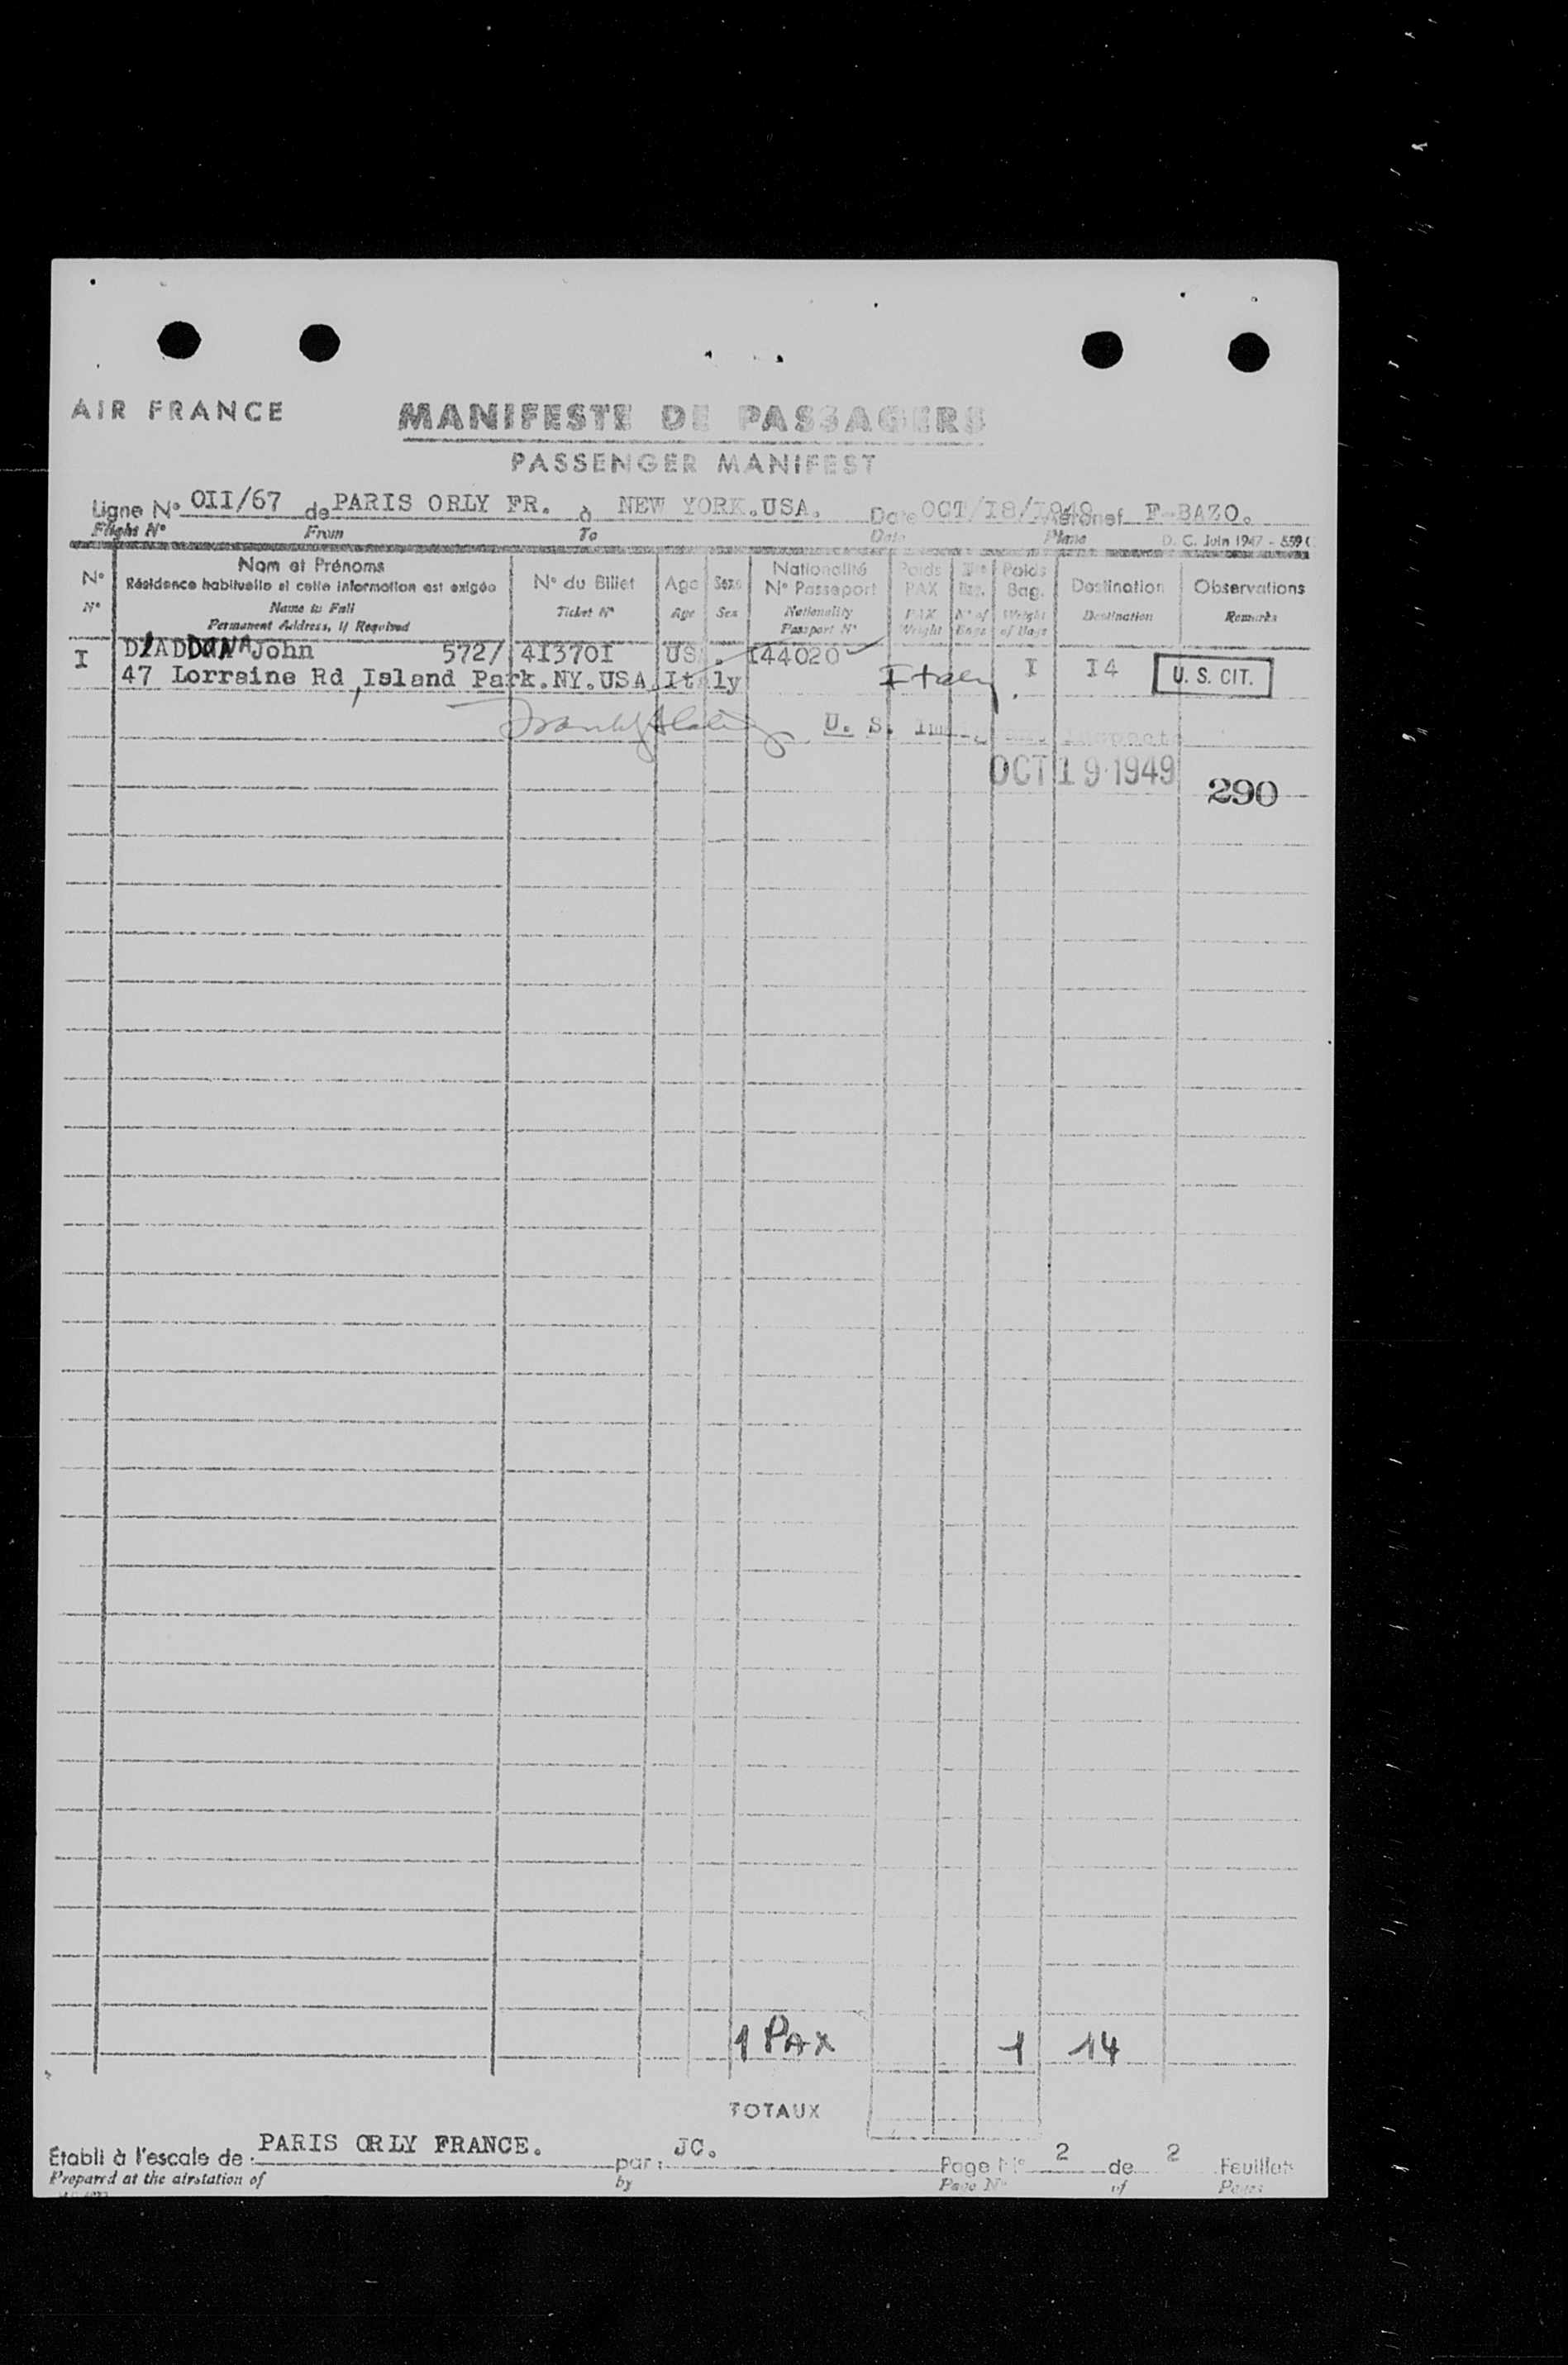 AIR FRANCE
MANIFESTE DE PASSAGERS
PASSENGER MANIFEST
Ligne N° OII/67 de PARIS ORLY FR. à NEW YORK.USA. Date OCT/I8/I949 Aéronef F-BAZO.
Flight N° From To Date Plane D. C. Juin 1947 -
N° Nom et Prénoms Résidence habituelle si cette information est exigée N° du Billet Age Sexe Nationalité N° Passeport Poids PAX Bag. Poids Bag. Destination Observations
N° Name in Full Permanent Address, if Required Ticket N° Age Sex Nationality Passport N° PAX Weight N° of Bags Weight of Bags Destination Remarks
I DIADDONA John 572/ 4I370I US. I44020
47 Lorraine Rd, Island Park.NY.USA Italy Italy I I4 U. S. CIT.
U. S.
OCT 19 1949
290
1 PAX 1 14
TOTAUX
Établi à l'escale de : PARIS ORLY FRANCE. par : JC. Page N° 2 de 2 Feuillets
Prepared at the airstation of by Page N° of Pages